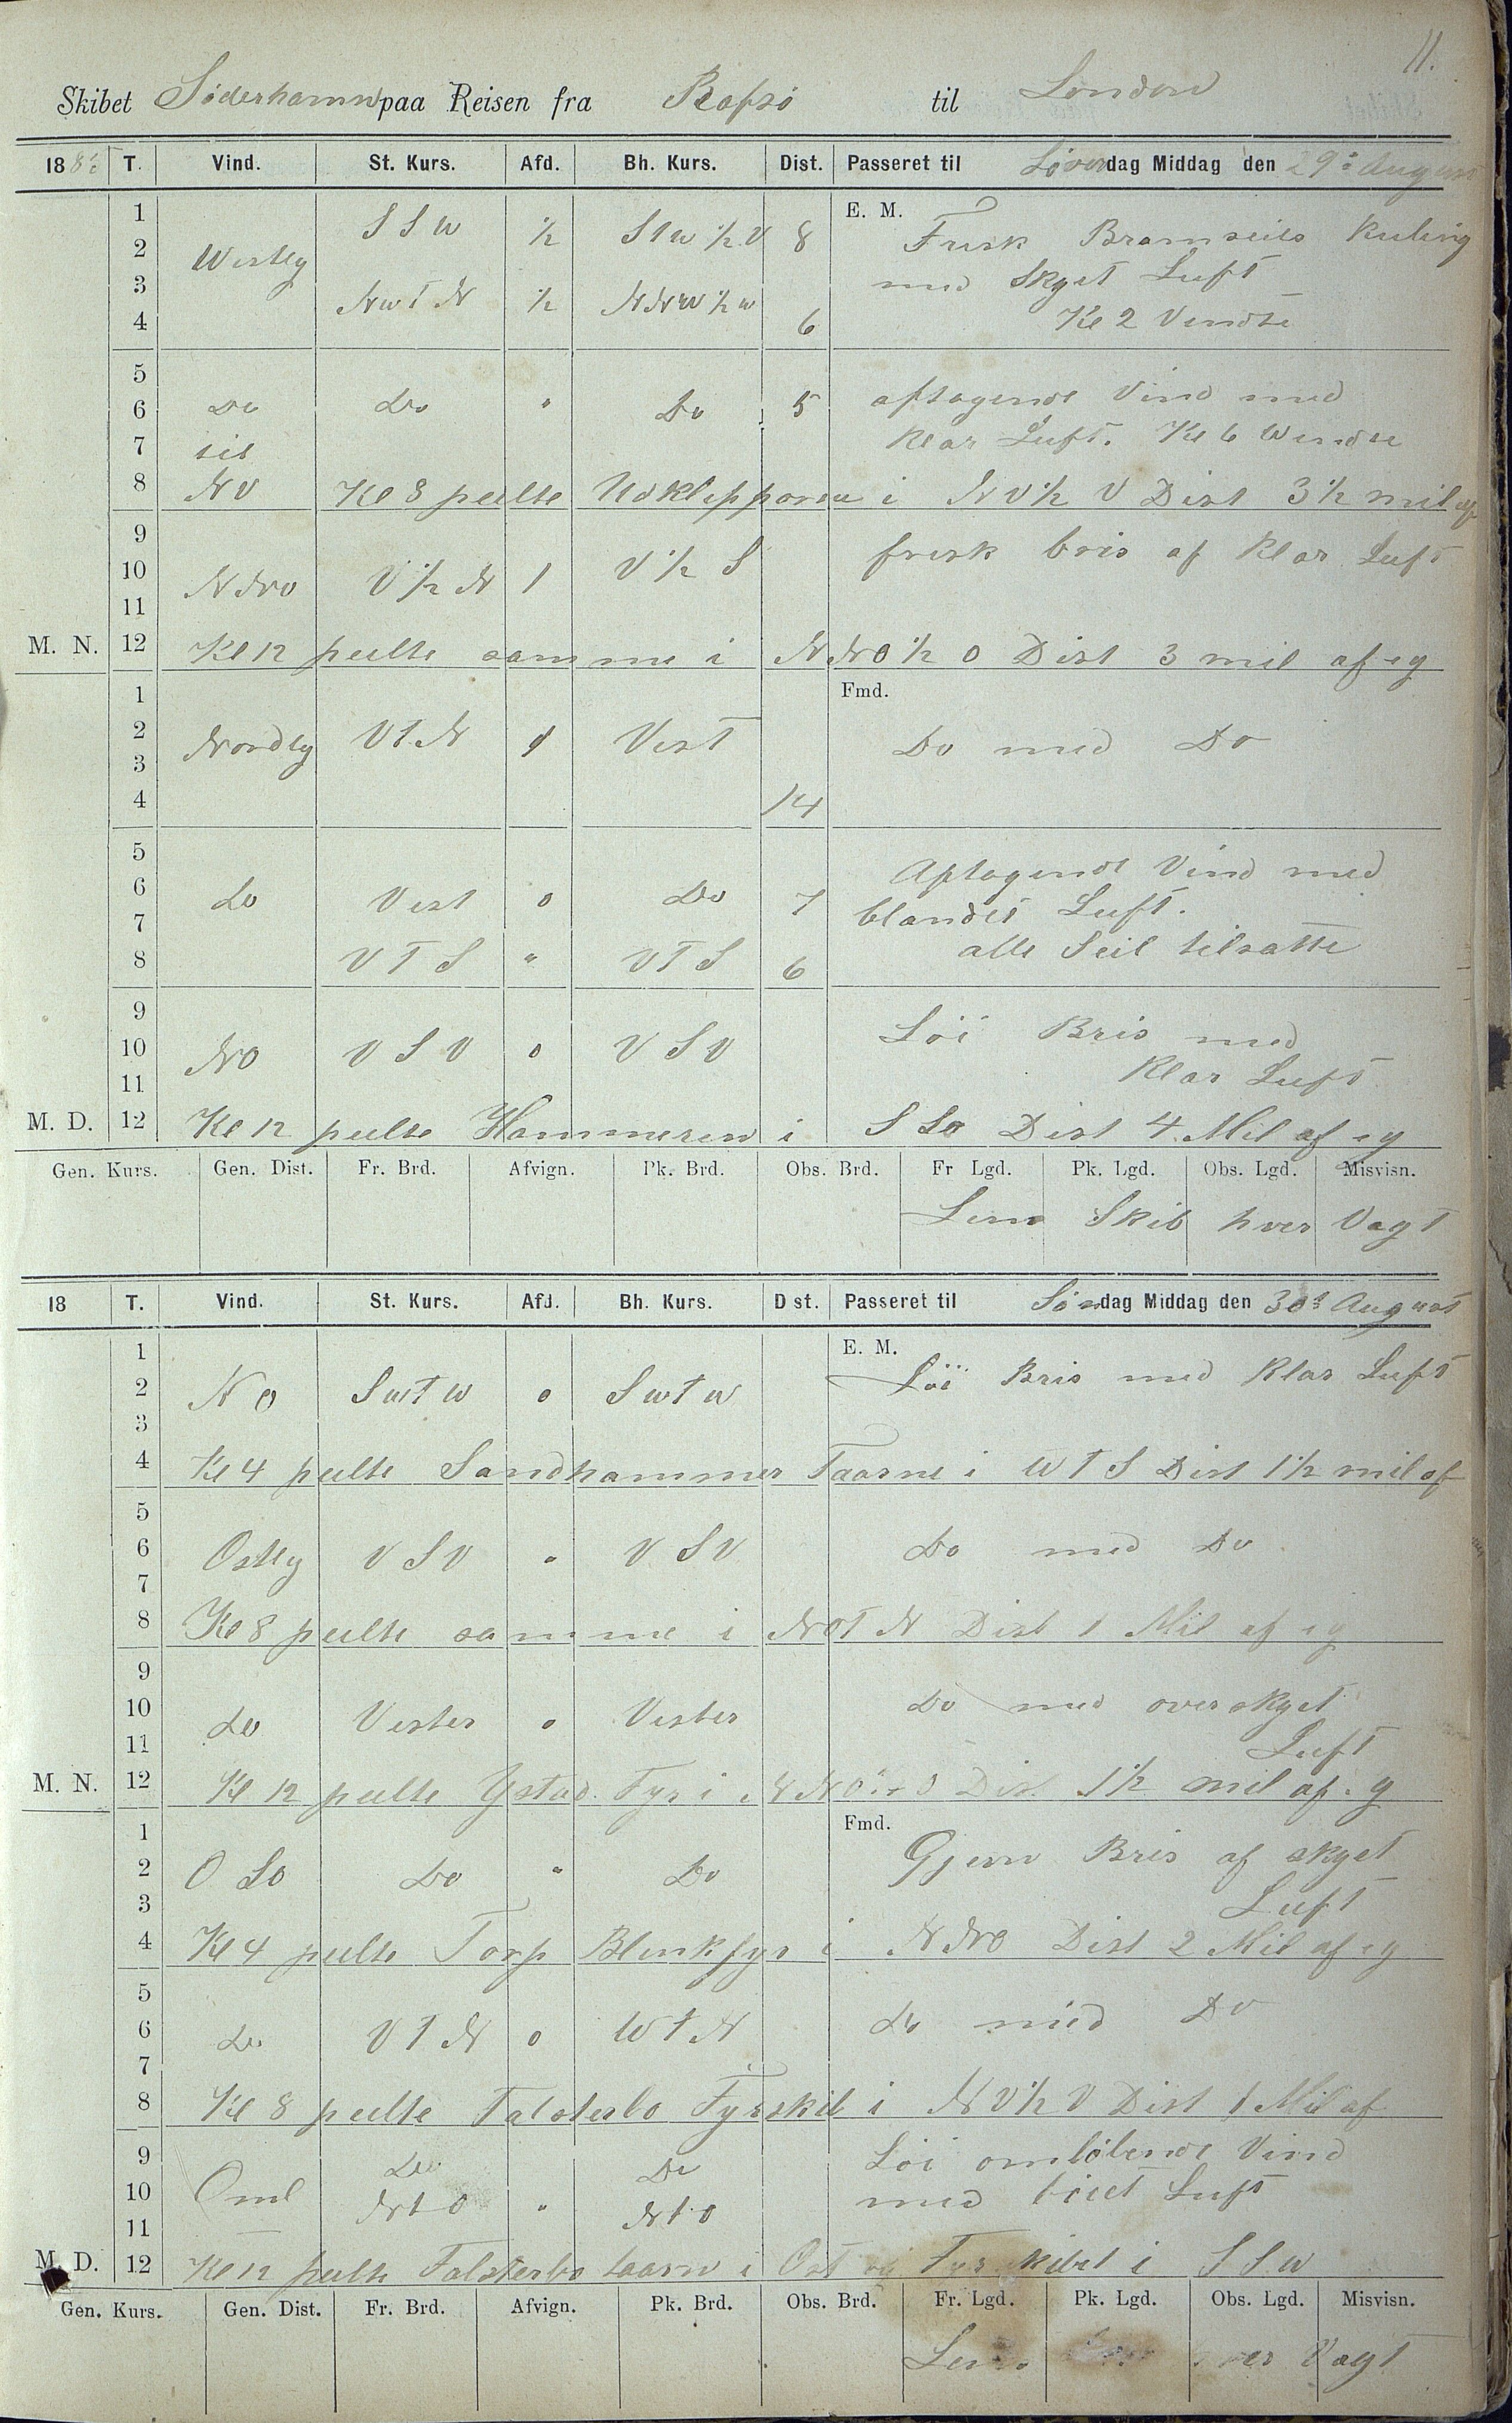 11.
Skibet Söderhamn paa Reisen fra Rafsö til London
188 T. Vind. St. Kurs. Afd. Bh. Kurs. Dist. Passeret til Löverdag Middag den 29 August
1 E. M.
SSW ½ StW½V 8 Frisk Bramseils Kuling
2 Westlg
3 med Skyet Luft
NWTN ½ NNW½W
4 6 Kl 2 Vendte
5
6 Do Do " Do 5 aftagende Vind med
7 til Klar Luft. Kl 6 Wendte
8 NV Kl 8 peilte Udklipporne i NV½V Dist 3½ mil af
9 frisk bris af Klar Luft
10 NNO V½N 1 V½S
11
M. N. 12 Kl 12 peilte samme i NNO½O Dist 3 mil af eg
1 Fmd.
2 Nordlg VTN 1 Vest Do med Do
3
4 14
5 Aftagende Vind med
6 Do Vest o Do 7
7 blandet Luft.
8 VTS " VTS 6 alle Seil tilsatte
9 Löi Bris med
10 NO VSV o VSV
11 Klar Luft
M. D. 12 Kl 12 peilte Hammeren i SSO Dist 4 Mil af eg
Gen. Kurs. Gen. Dist. Fr. Brd. Afvign. Pk. Brd. Obs. Brd. Fr Lgd. Pk. Lgd. Obs. Lgd. Misvisn.
Lens Skib hver Vagt
18 T. Vind. St. Kurs. Afd. Bh. Kurs. Dist. Passeret til Söndag Middag den 30t August
1 E. M.
2 NO SWTW o SWTW Löi Bris med Klar Luft
3
4 Kl 4 peilte Sandhammer Taarne i WTS Dist 1½ mil af
5
6 Ostlg VSV " VSV Do med Do
7
8 Kl 8 peilte samme i NOTN Dist 1 Mil af eg
9
10 Do Vester o Vester Do med overskyet
11 Luft
M. N. 12 Kl 12 peilte Ystad Fyr i Dist 1½ mil af eg
1 Fmd.
2 OSO Do " Do Gjenn Bris af skyet
3 Luft
4 Kl 4 peilte Torp Blinkfyr i NNO Dist 2 Mil af eg
5
6 Do VTN o WTN Do med Do
7
8 Kl 8 peilte Falsterbo Fyrskib i NV½V Dist 1 Mil af
9 Do Do Löi omlöbende Vind
10 Oml NtO " NtO med Luft
11
M. D. 12 Kl 12 peilte Falsterbo taarn i Ost og Fyrskibet i SSW
Gen. Kurs. Gen. Dist. Fr. Brd. Afvign. Pk. Brd. Obs. Brd. Fr. Lgd. Pk. Lgd. Obs. Lgd. Misvisn.
Lens hver Vagt